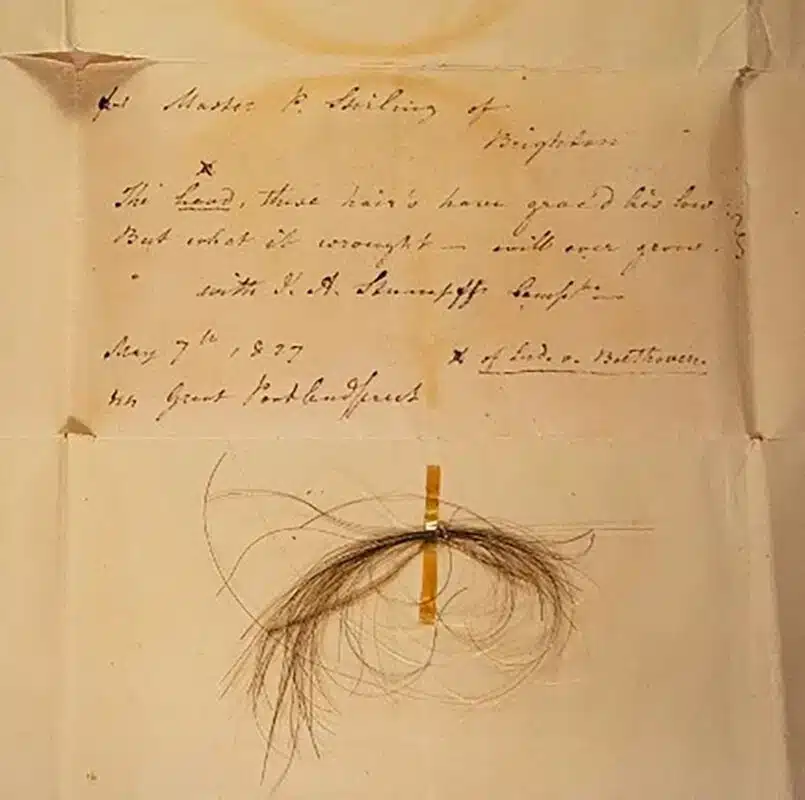 for Master P. Stirling of
Brighton
x
The head, these hair's have grac'd lies low
But what it wrought — will ever grow.
with J. A. Stumpffs Compts
May 7th 1827
Great Portlandstreet
x of Ludv. v. Beethoven.